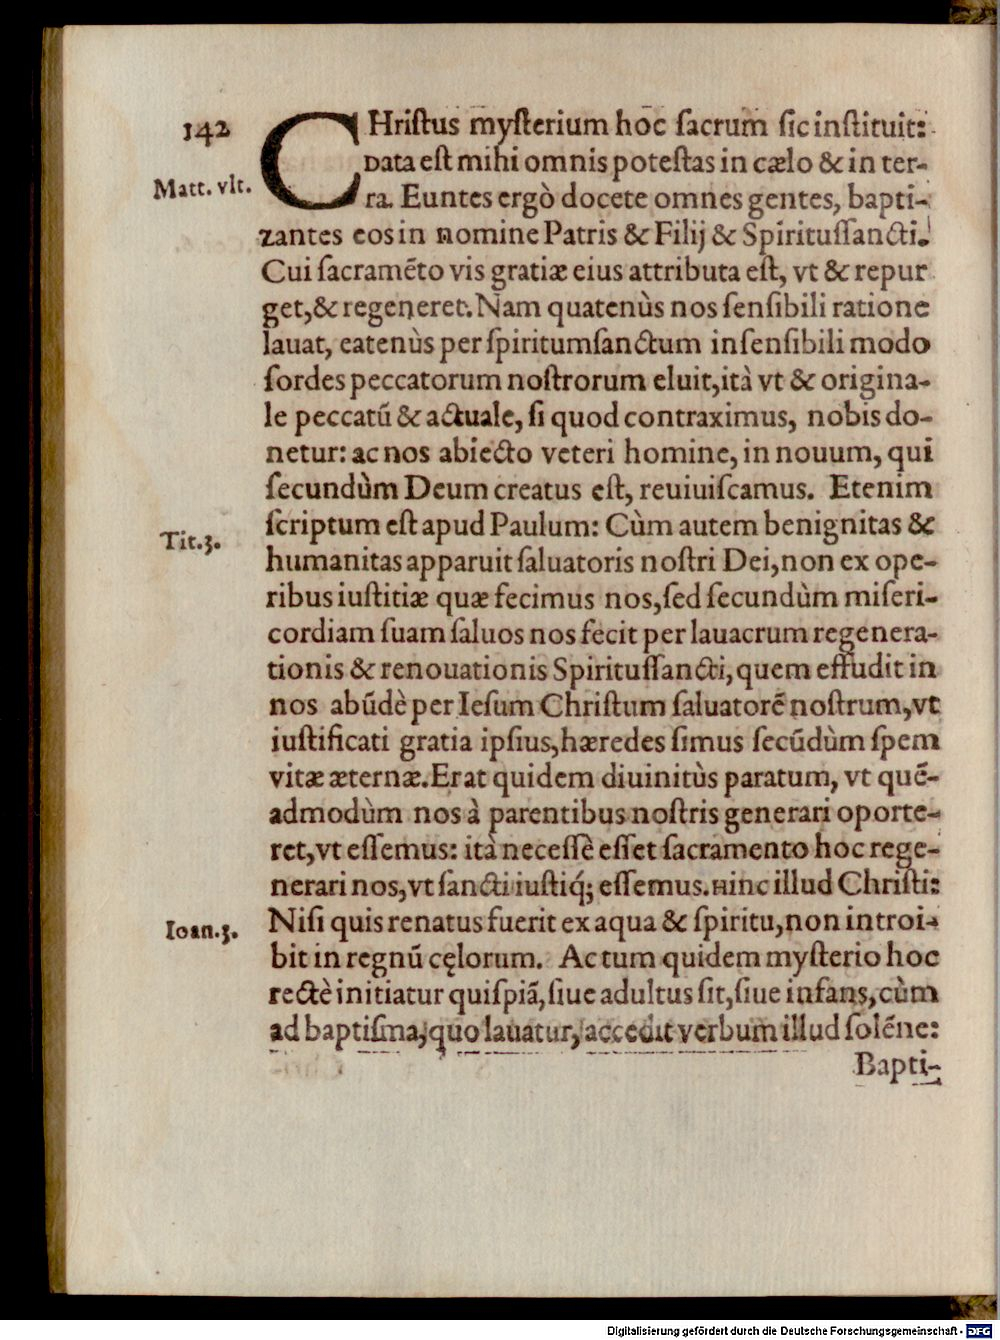 142
CHriſtus myſterium hoc ſacrum ſic inſtituit:
Matt. vlt.
Data eſt mihi omnis poteſtas in cælo & in ter-
ra. Euntes ergò docete omnes gentes, bapti-
zantes eos in nomine Patris & Filij & Spirituſſancti.
Cui ſacramẽto vis gratiæ eius attributa eſt, vt & repur
get, & regeneret. Nam quatenùs nos ſenſibili ratione
lauat, eatenùs per ſpiritumſanctum inſenſibili modo
ſordes peccatorum noſtrorum eluit, ità vt & origina-
le peccatũ & actuale, ſi quod contraximus, nobis do-
netur: ac nos abiecto veteri homine, in nouum, qui
ſecundùm Deum creatus eſt, reuiuiſcamus. Etenim
Tit.3.
ſcriptum eſt apud Paulum: Cùm autem benignitas &
humanitas apparuit ſaluatoris noſtri Dei, non ex ope-
ribus iuſtitiæ quæ fecimus nos, ſed ſecundùm miſeri-
cordiam ſuam ſaluos nos fecit per lauacrum regenera-
tionis & renouationis Spirituſſancti, quem effudit in
nos abũdè per Ieſum Chriſtum ſaluatorẽ noſtrum, vt
iuſtificati gratia ipſius, hæredes ſimus ſecũdùm ſpem
vitæ æternæ. Erat quidem diuinitùs paratum, vt quẽ-
admodùm nos à parentibus noſtris generari oporte-
ret, vt eſſemus: ità neceſſè eſſet ſacramento hoc rege-
nerari nos, vt ſancti iuſtiq́; eſſemus. Hinc illud Chriſti:
Ioan.3.
Niſi quis renatus fuerit ex aqua & ſpiritu, non introi-
bit in regnũ cęlorum. Ac tum quidem myſterio hoc
rectè initiatur quiſpiã, ſiue adultus ſit, ſiue infans, cùm
ad baptiſma, quo lauatur, accedit verbum illud ſolẽne:
Bapti-
Digitalisierung gefördert durch die Deutsche Forschungsgemeinschaft - DFG